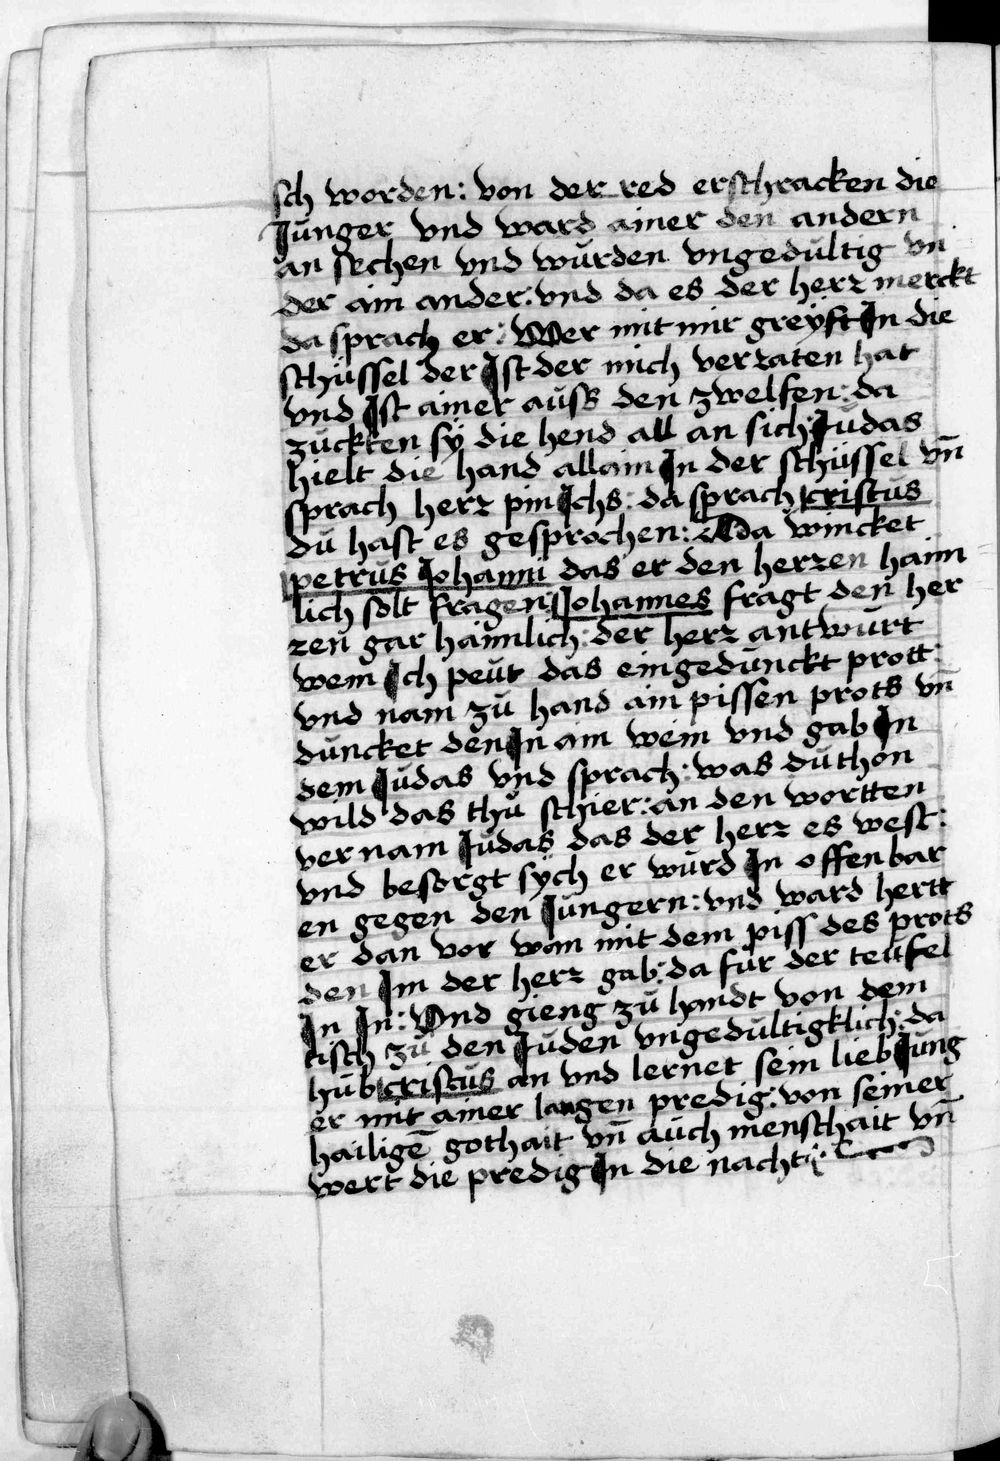 sch worden: von der red erschracken die
Junger vnd ward ainer den andern
an sechen vnd wurden vngedultig vn
der ain ander: vnd da es der herz merckt
da sprach er: Wer mit mir greÿft In die
schüssel der Ist der mich verzaten hat
vnd Ist ainer auss den zwelfen: da
zuckten sÿ die hend all an sich: Judas
hielt die hand allain In der schüssel vn̄
sprach herz pin Ichs: da sprach cristus
du hast es gesprochen: Da wincket
petrus Johanni das er den herzen haim
lich solt fragen: Johannes fragt den her
zen gar haimlich: der herz antwurt
wem Ich peut das eingedunckt prott:
vnd nam zu hand ain pissen prots vn̄
duncket den In ain wein vnd gab In
dem Judas vnd sprach: was du thon
wild das thu schier: an den wortten
ver nam Judas das der herz es west:
vnd besorgt sÿch er wurd In offenbar
en gegen den Jungern: vnd ward hertt
er dan vor wan mit dem piss des prots
den Im der herz gab: da fur der teufel
In In: Vnd gieng zu handt von dem
tisch zu den Juden vngedultigklich: da
hub cristus an vnd lernet sein lieb Jung
er mit ainer langen predig: von seiner
hailigē gothait vn̄ auch menschait vn̄
wert die predig In die nacht